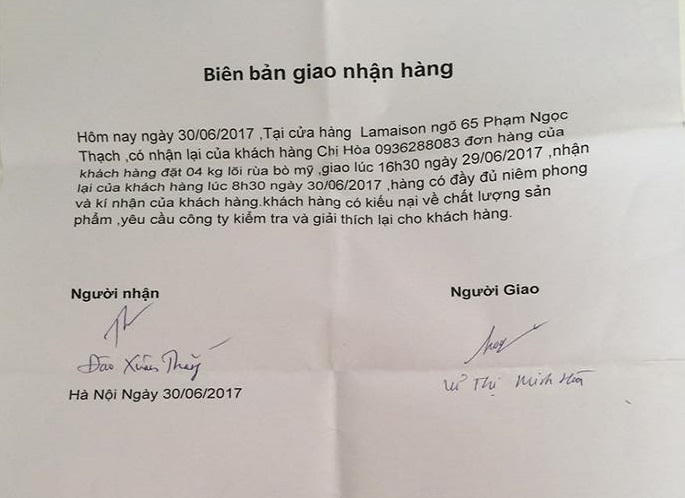 Biên bản giao nhận hàng
Hôm nay ngày 30/06/2017 ,Tại cửa hàng Lamaison ngõ 65 Phạm Ngọc
Thạch ,có nhận lại của khách hàng Chị Hòa 0936288083 đơn hàng của
khách hàng đặt 04 kg lõi rùa bò mỹ ,giao lúc 16h30 ngày 29/06/2017 ,nhận
lại của khách hàng lúc 8h30 ngày 30/06/2017 ,hàng có đầy đủ niêm phong
và kí nhận của khách hàng.khách hàng có kiếu nại về chất lượng sản
phẩm ,yêu cầu công ty kiểm tra và giải thích lại cho khách hàng.
Người nhận
Người Giao
Đào Xuân
Thị Minh Hòa
Hà Nội Ngày 30/06/2017